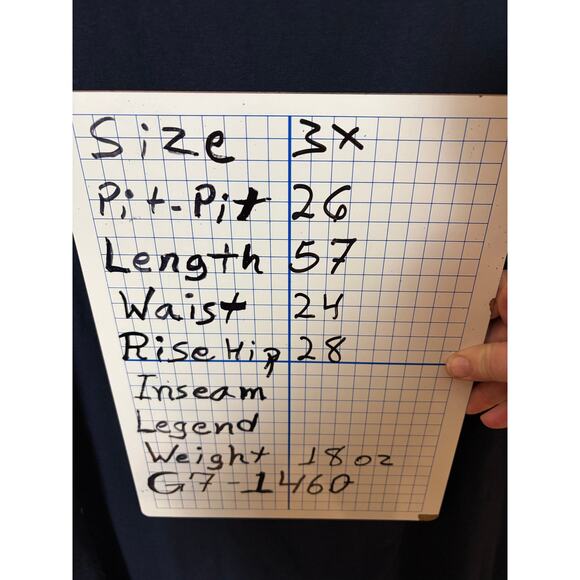 Size 3X
Pit-Pit 26
Length 57
Waist 24
Rise Hip 28
Inseam
Legend
Weight 18 oz
G7-1460